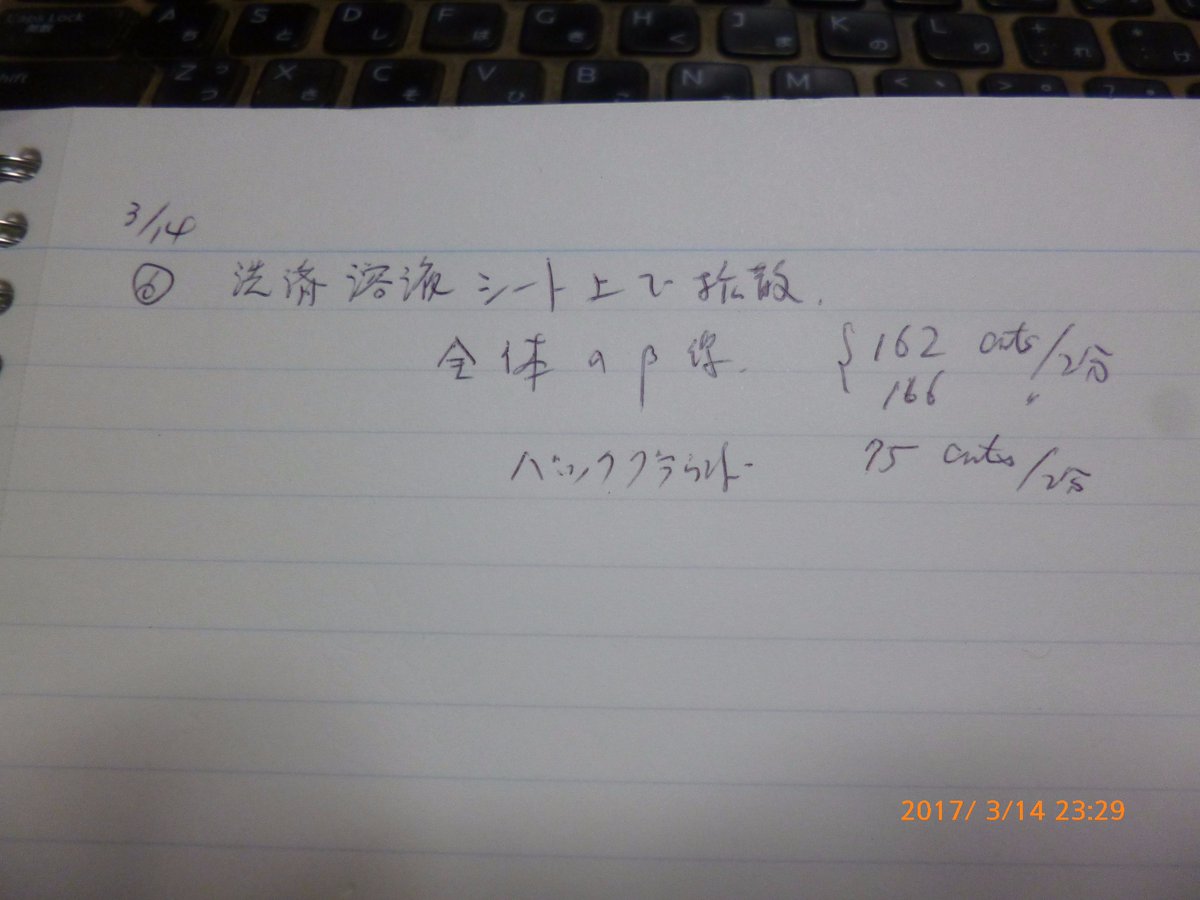 Caps Lock A ち S と D し F は G き H く J ま K の L り + れ * け
Shift Z つ X さ C そ V ひ B こ N み M も < 、 > 。
3/14
⑥ 洗済溶液シート上で拡散.
全体のβ線. 162 cnts/2分
166 〃
バックグラウンド 75 cnts/2分
2017/ 3/14 23:29